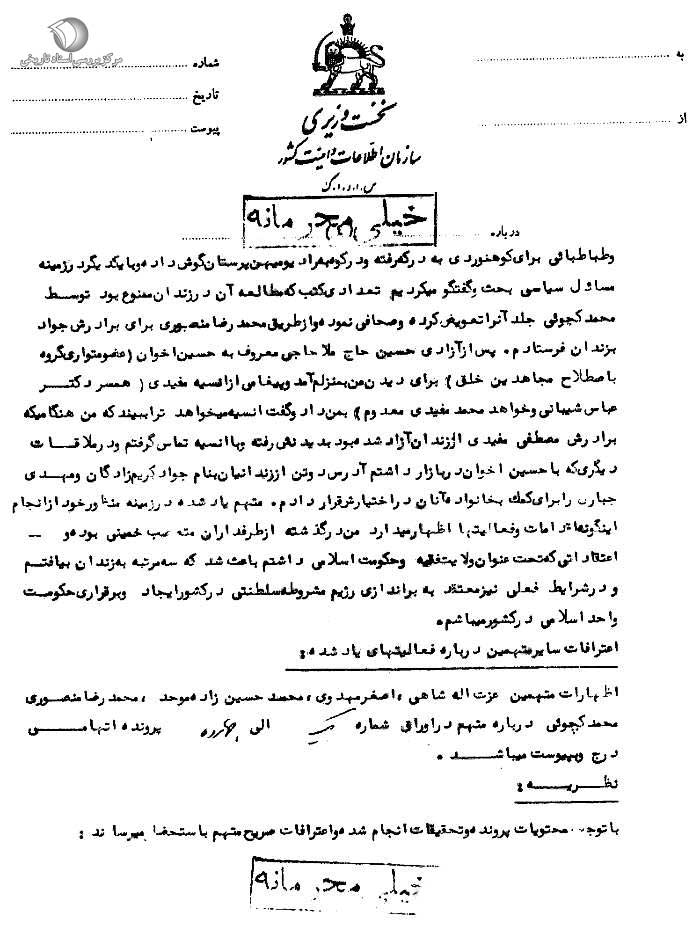 مرکز بررسی اسناد تاریخی
به
شماره
تاریخ
از
پیوست
نخست وزیری
سازمان اطلاعات و امنیت کشور
س.ا.و.ا.ک
خیلی محرمانه
درباره
وطباطبائی برای کوهنوردی به درکه رفته ودرکوه به رادیومیهن پرستان گوش داده وبا یکدیگر درزمینه
مسائل سیاسی بحث وگفتگو میکردیم تعدادی کتب که مطالعه آن درزندان ممنوع بود توسط
محمد کچوئی جلد آنرا تعویض کرده وصحافی نموده وازطریق محمد رضا منصوری برای برادرش جواد
بزندان فرستادم. پس ازآزادی حسین حاج ملاحاجی معروف به حسین اخوان (عضو متواری گروه
باصطلاح مجاهدین خلق) برای دیدن من بمنزلم آمد وپیغامی ازانسیه مفیدی (همسر دکتر
عباس شیبانی وخواهر محمد مفیدی معدوم) بمن داد وگفت انسیه میخواهد ترا ببیند که من هنگامیکه
برادرش مصطفی مفیدی اززندان آزاد شده بود بدیدنش رفته وبا انسیه تماس گرفتم ودرملاقات
دیگری که با حسین اخوان دربازار داشتم آدرس دوتن اززندانیان بنام جواد کریم زادگان ومهدی
جباری را برای کمک بخانواده آنان دراختیارش قرار دادم. متهم یاد شده درزمینه منظورخود ازانجام
اینگونه اقدامات وفعالیتها اظهارمیدارد من درگذشته ازطرفداران متعصب خمینی بوده و
اعتقاداتی که تحت عنوان ولایت فقیه وحکومت اسلامی داشتم باعث شد که سه مرتبه به زندان بیافتم
و درشرایط فعلی نیزمعتقد به براندازی رژیم مشروطه سلطنتی درکشور ایجاد وبرقراری حکومت
واحد اسلامی درکشورمیباشم.
اعترافات سایرمتهمین درباره فعالیتهای یاد شده:
اظهارات متهمین عزت اله شاهی، اصغرمهدوی، محمد حسین زاده موحد، محمد رضا منصوری
محمد کچوئی درباره متهم دراوراق شماره یک الی چهارده پرونده اتهامی
درج وپیوست میباشد.
نظریه:
با توجه بمحتویات پرونده وتحقیقات انجام شده واعترافات صریح متهم باستحضار میرساند:
خیلی محرمانه